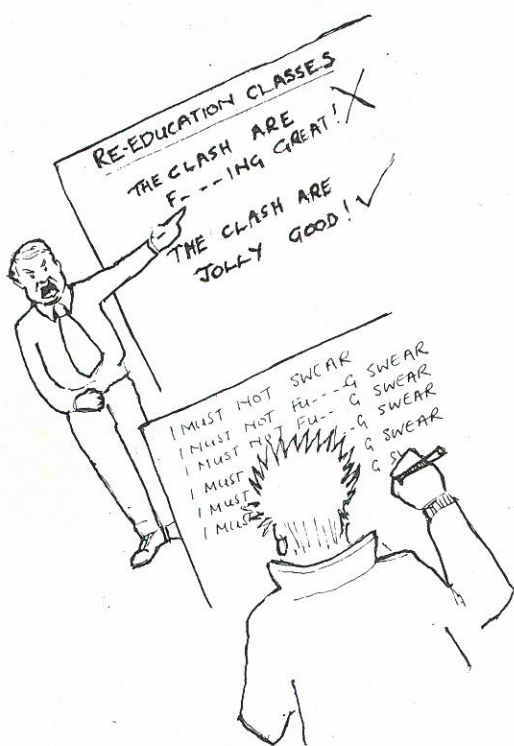 RE-EDUCATION CLASSES
THE CLASH ARE
F----ING GREAT! X
THE CLASH ARE
JOLLY GOOD! ✓
I MUST NOT SWEAR
I MUST NOT FU---G SWEAR
I MUST NOT FU--G SWEAR
I MUST G SWEAR
I MUST G SWEAR
I MUS G SW